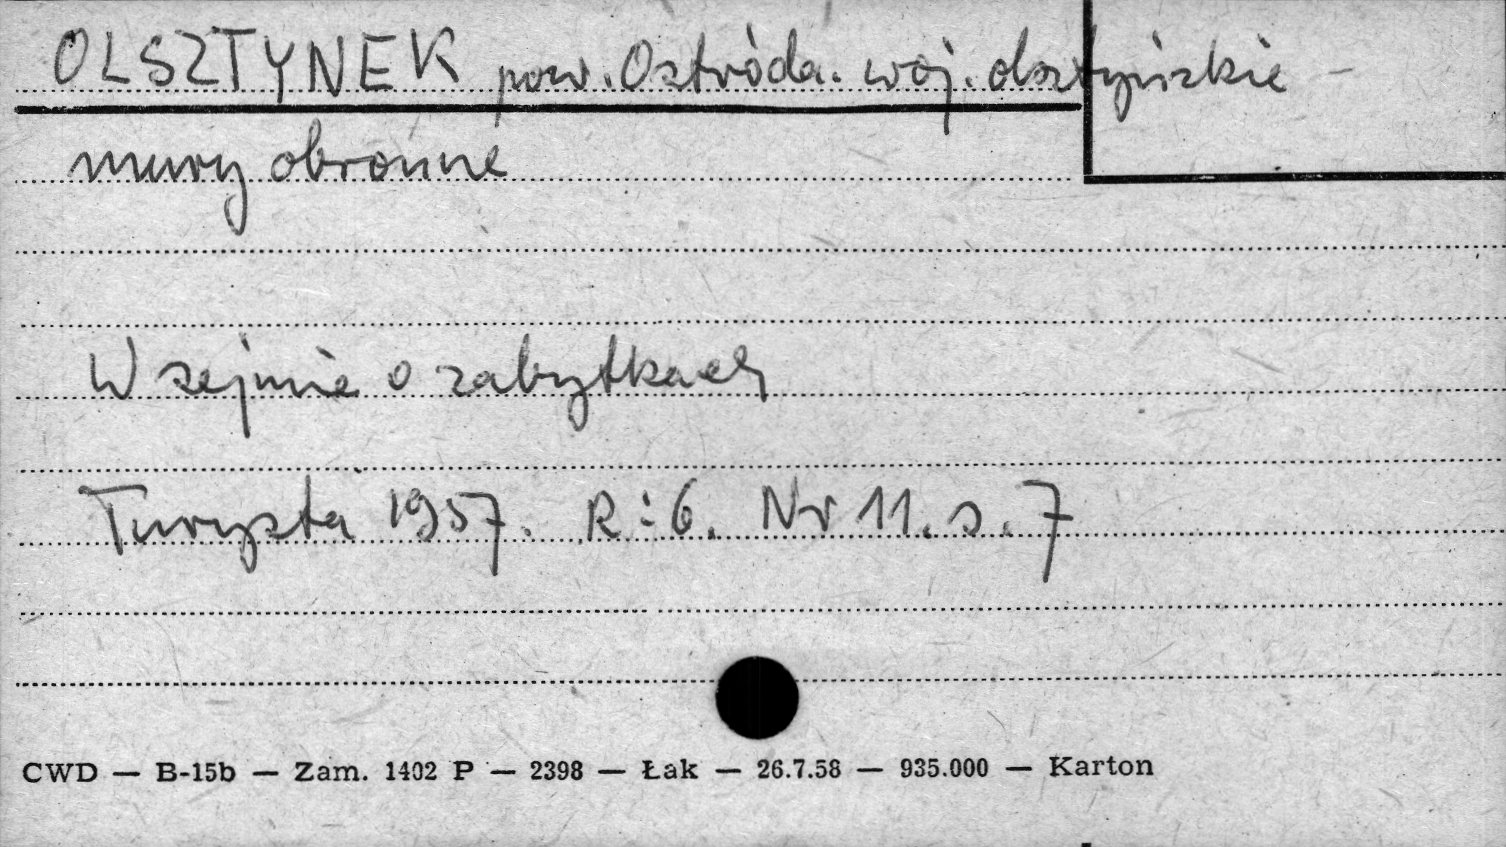 OLSZTYNEK pow. Ostróda. woj. olsztyńskie -
mury obronne
W sejmie o zabytkach
Turysta 1957. R: 6. Nr 11. s. 7
CWD — B-15b — Zam. 1402 P — 2398 — Łak — 26.7.58 — 935.000 — Karton